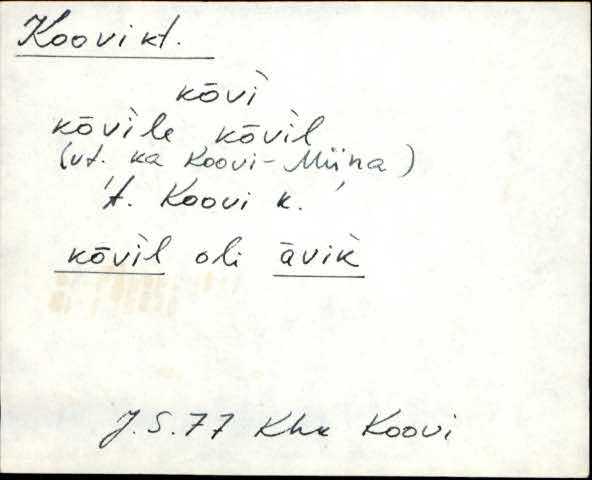 Koovi kt.
kōvì
kōvìle kōvìl
(vt. ka Koovi-Miina)
't. Koovi k.'
kōvìl oli āvìk
J.S.77 Khk Koovi